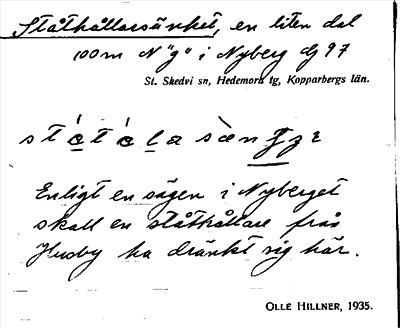 Ståthållarsänket, en liten dal
100 m N "g" i Nyberg dg 97
St. Skedvi sn, Hedemora tg, Kopparbergs län.
Enligt en sägen i Nyberget
skall en ståthållare från
Husby ha dränkt sig här.
OLLE HILLNER, 1935.